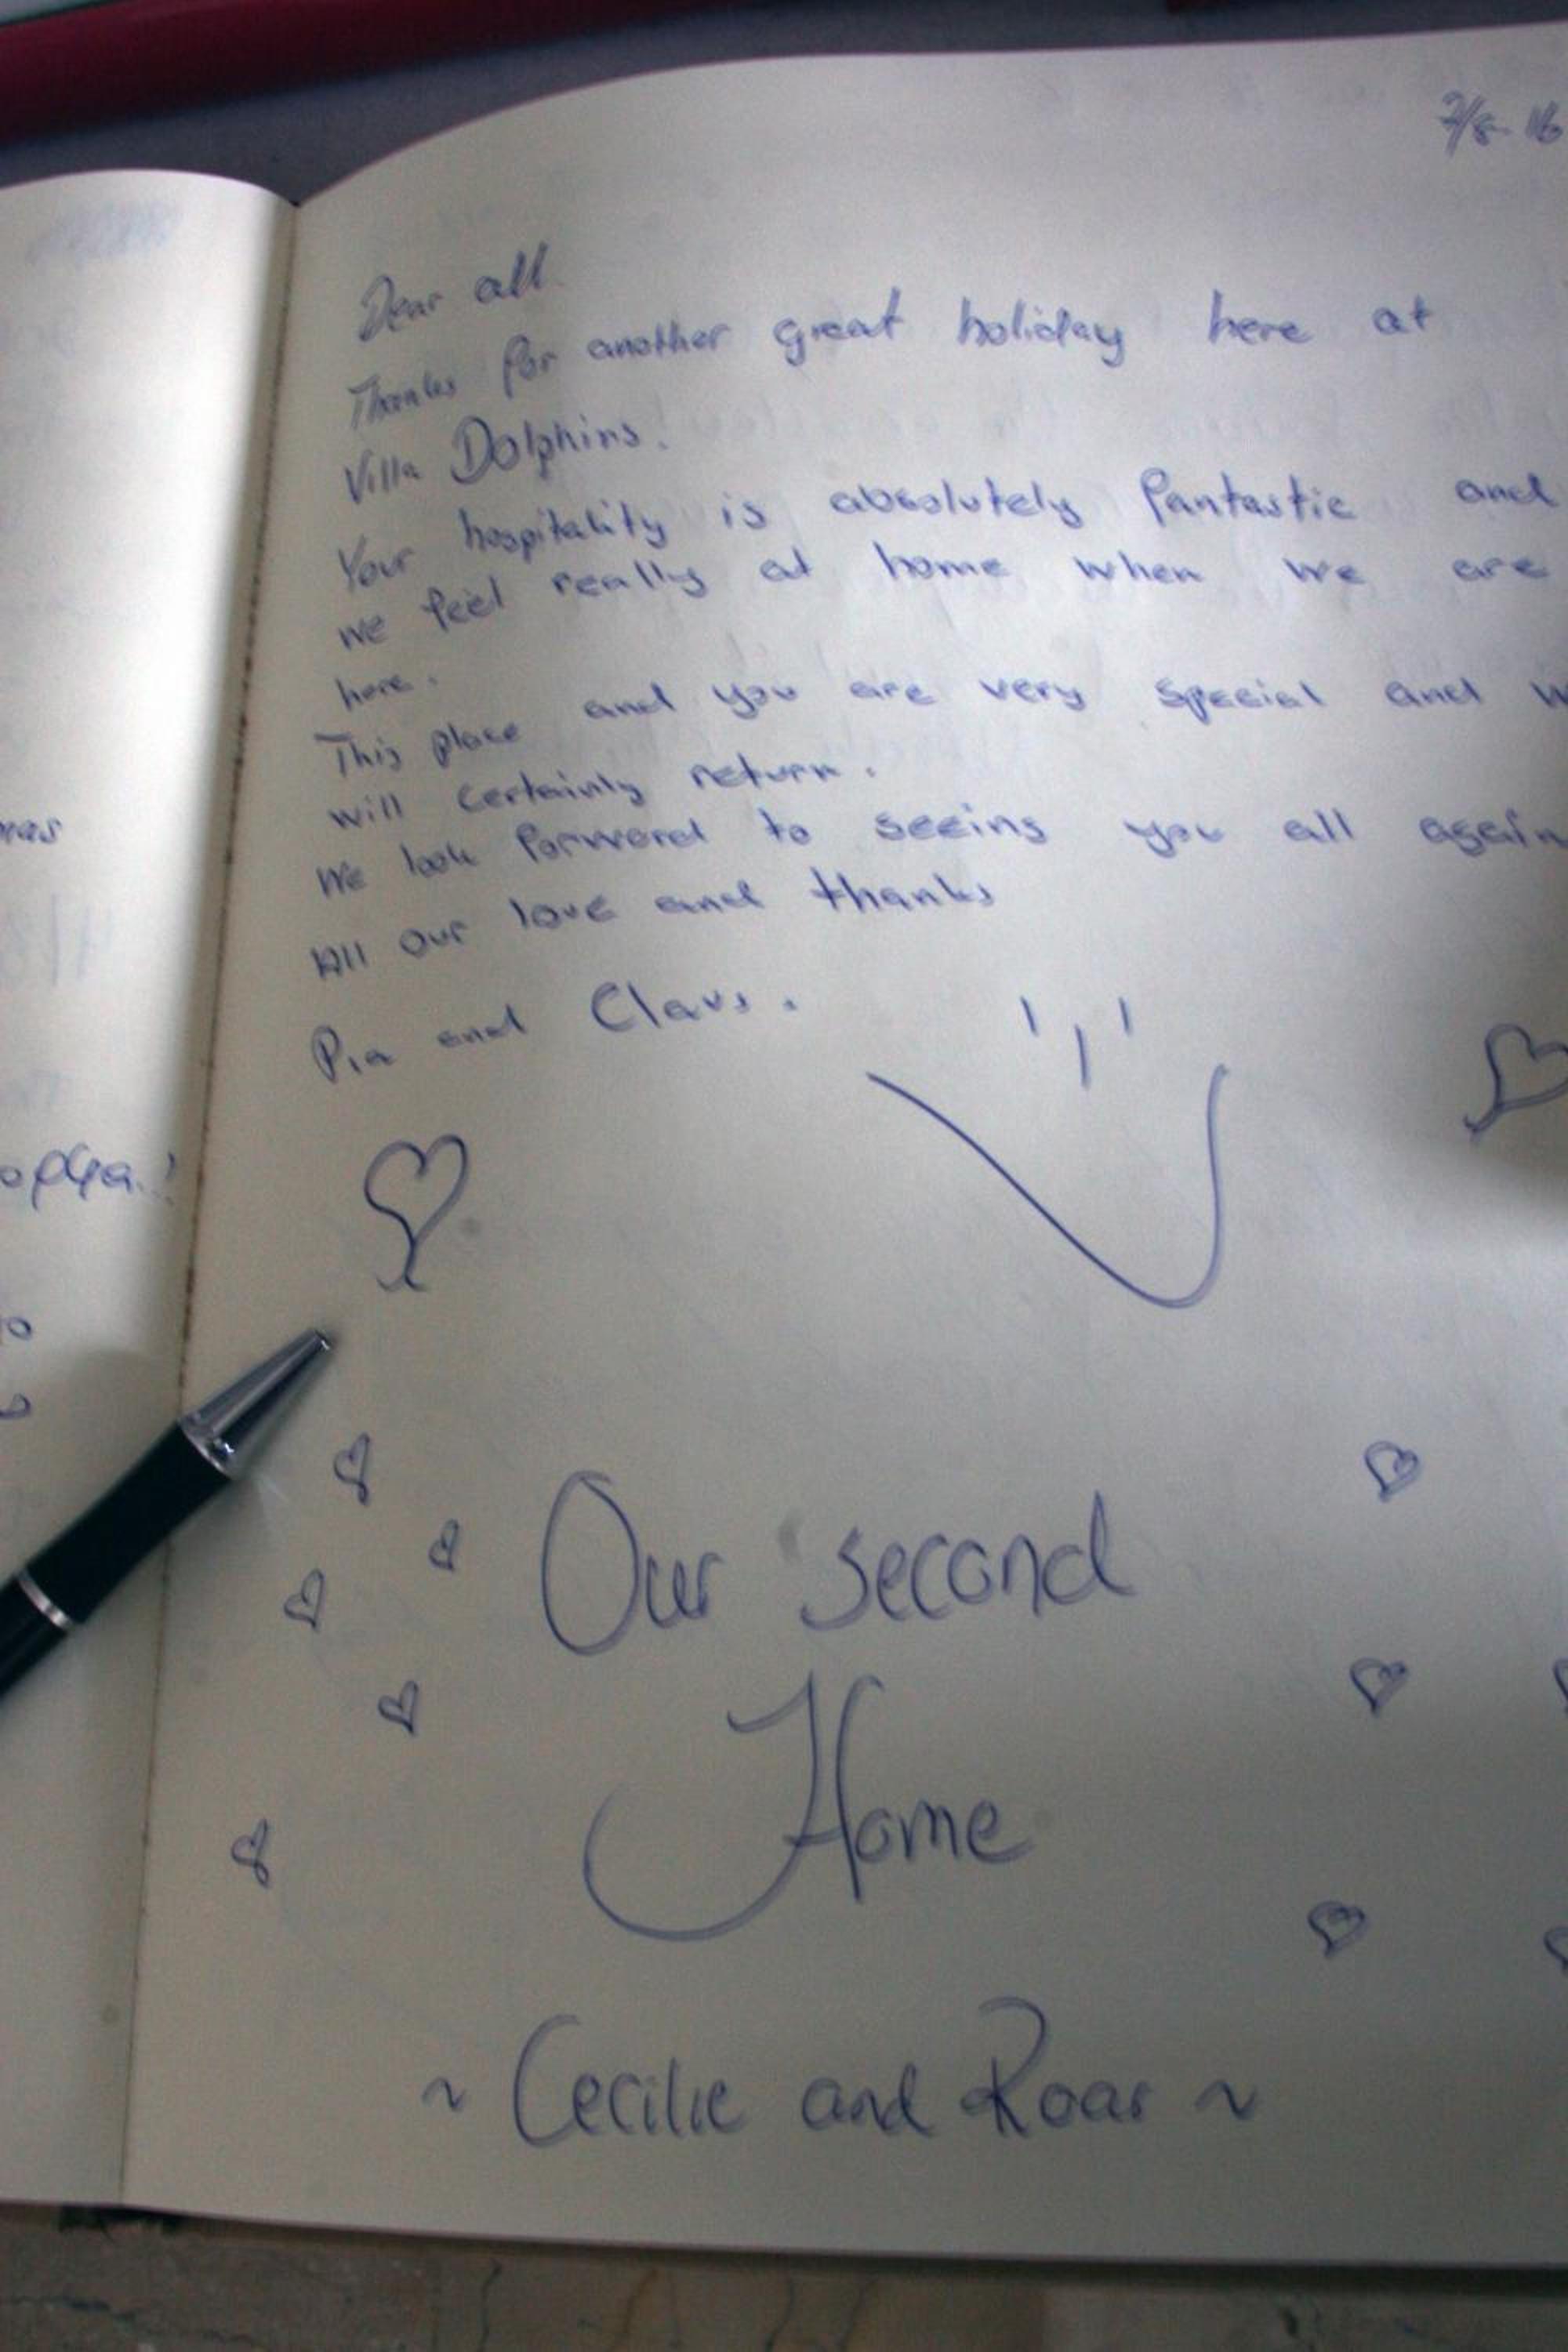 7/8-16
Dear all.
Thanks for another great holiday here at
Villa Dolphins.
Your hospitality is absolutely fantastic and
we feel really at home when we are
here.
This place and you are very special and w
will certainly return.
We look forward to seeing you all again
All our love and thanks
Pia and Claus.
Our second
Home
~ Cecilie and Roar ~